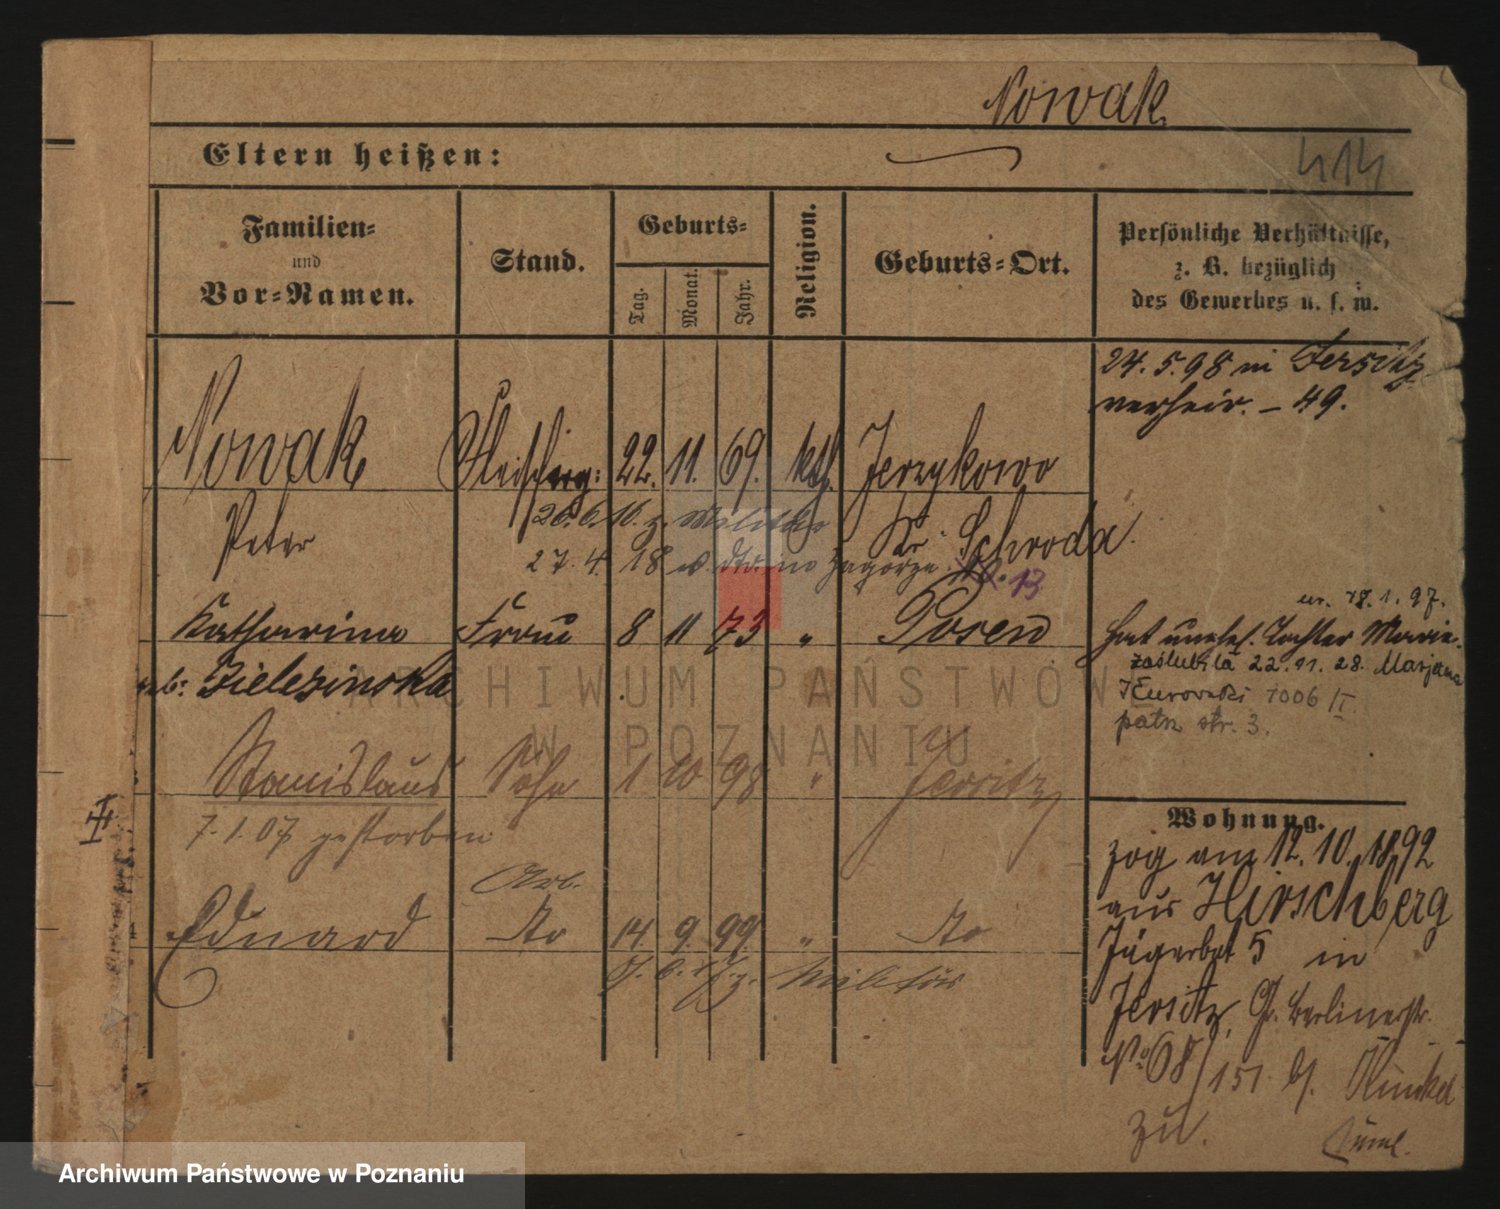 Nowak
Eltern heißen:
414
Familien=
und
Vor=Namen.
Stand.
Geburts=
Tag.
Monat.
Jahr.
Religion.
Geburts=Ort.
Persönliche Verhältnisse,
z. B. bezüglich
des Gewerbes u. s. w.
24. 5. 98 in Jersitz
verheir. – 49.
Nowak 22. 11. 69. kth. Jerzykowo
Peter
26. 6. 16. z. Militär
Kr. Schroda
27. 4. 18 in Zagorze No. 13
ur. 18. 1. 97.
Katharina Frau 8 11 73 " Posen
hat unehel. Tochter Marie
geb: Zielezinska
zaślubiła 22. 11. 28. Marjana
Kurowski 1006 II
patrz str. 3.
Stanislaus Sohn 1 10 98 " Jersitz
7. 1. 07 gestorben
Wohnung.
zog am 12. 10. 1892
aus Hirschberg
Arb.
Eduard do 14. 9. 99. " do
Jägerbat 5 in
z. Militär
Jersitz, Gr. Berlinerstr.
No 68/151 bei
zu.
Archiwum Państwowe w Poznaniu
ARCHIWUM PAŃSTWOWE
W POZNANIU